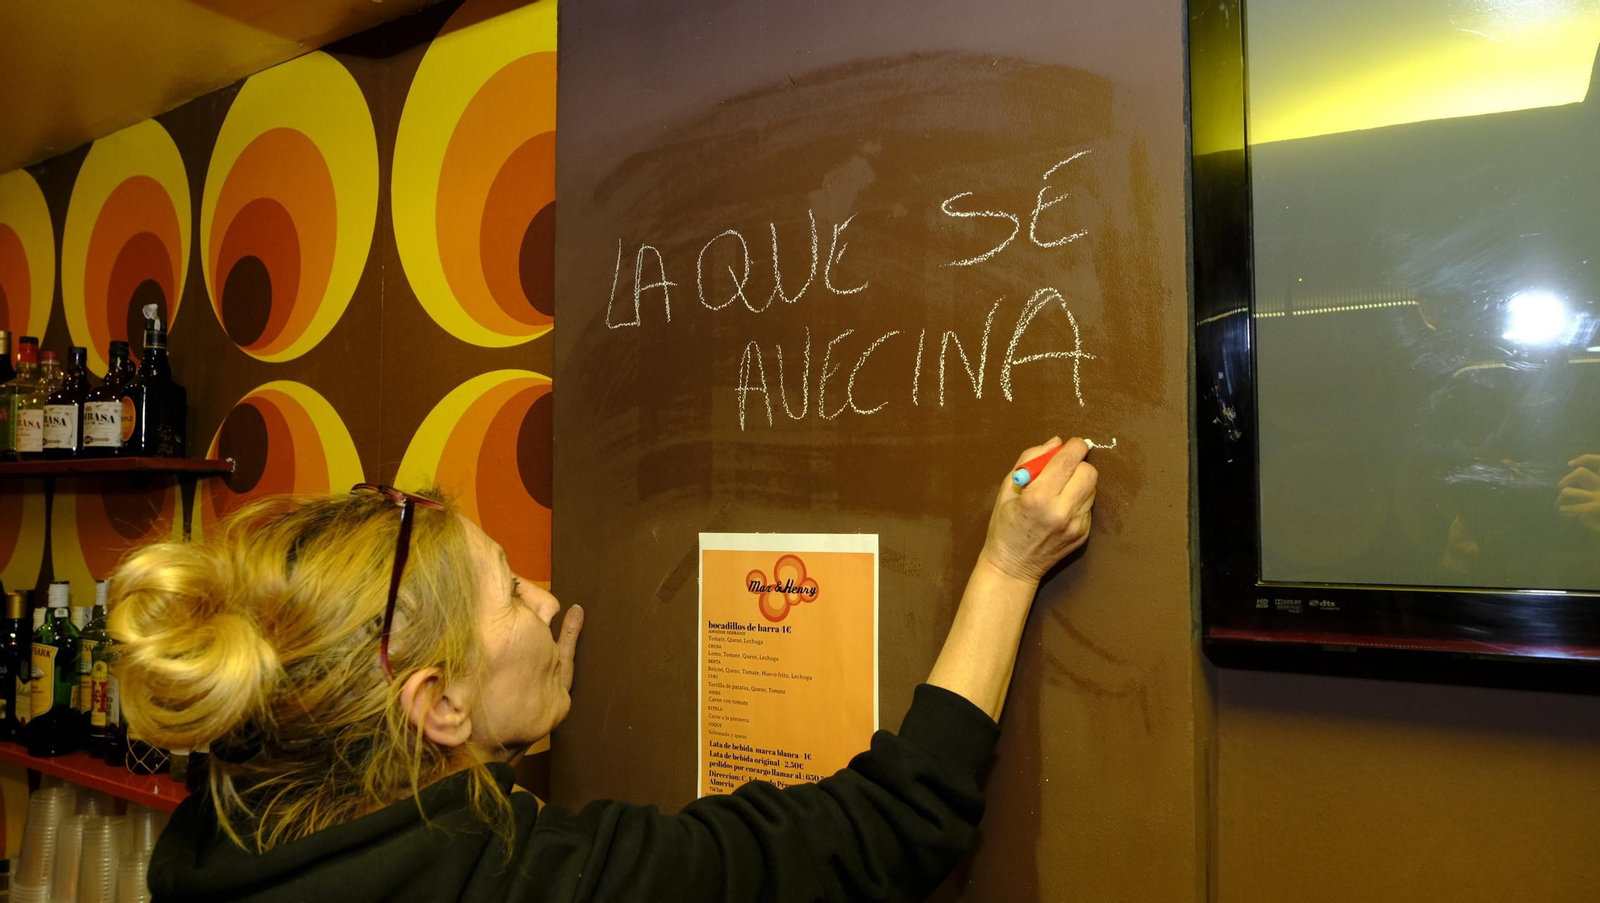 LA QUE SÉ
AVECINA
Max & Henry
bocadillos de barra 4€
AMADOR SERRANO
Tomate, Queso, Lechuga
CRUSA
Lomo, Tomate, Queso, Lechuga
BERTA
Beicon, Queso, Tomate, Huevo frito, Lechuga
CUKI
Tortilla de patatas, Queso, Tomate
Carne con tomate
ESTELA
Carne a la pimienta
COQUE
Sobrasada y queso
Lata de bebida marca blanca 1€
Lata de bebida original 2,50€
pedidos por encargo llamar al : 650
Direccion: C.
Almería
TikTok
BASA
BASA
BASA
SARK
HD
DOLBY
dts